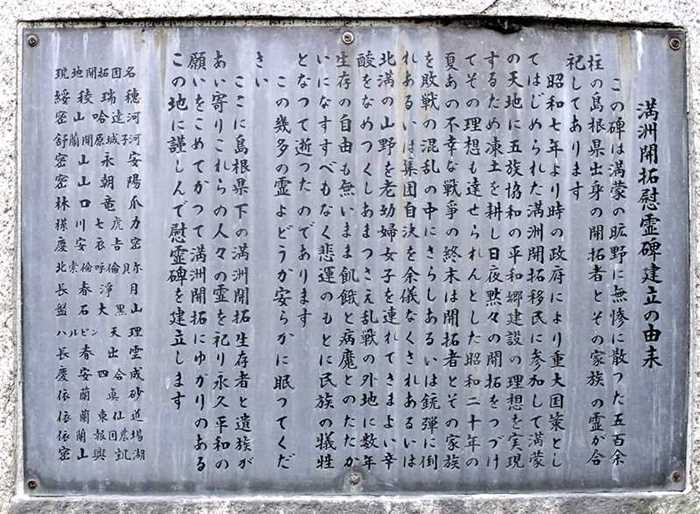 満洲開拓慰霊碑建立の由来
この碑は満蒙の曠野に無惨に散った五百余
柱の島根県出身の開拓者とその家族の霊が合
祀してあります
昭和七年より時の政府により重大国策とし
てはじめられた満洲開拓移民に参加して満蒙
の天地に五族協和の平和郷建設の理想を実現
するため凍土を耕し日夜黙々の開拓をつづけ
てその理想も達せられんとした昭和二十年の
夏あの不幸な戦爭の終末は開拓者とその家族
を敗戦の混乱の中にさらしあるいは銃弾に倒
れあるいは集団自決を余儀なくされあるいは
北満の山野を老幼婦女子を連れてさまよい辛
酸をなめつくしあまつさえ乱戦の外地に数年
生存の自由も無いまま飢餓と病魔とのたたか
いになすすべもなく悲運のもとに民族の犠牲
となって逝ったのであります
この幾多の霊よどうか安らかに眠ってくだ
さい
ここに島根県下の満洲開拓生存者と遺族が
あい寄りこれらの人々の霊を祀り永久平和の
願いをこめてかつて満洲開拓にゆかりのある
この地に謹しんで慰霊碑を建立します
現地開拓団名
綏稜瑞穂
密山哈達河
舒蘭開原城子河
密山永安
密山朝陽
林口竜爪
樺川七虎力
慶安衣吉密
北索倫呼倫貝尓
長春浄月
盤石大黒山
ハルピン天理
長春出雲
慶安四合成
依蘭眞砂
依蘭東仙道
依蘭報国農場
密山興凱湖